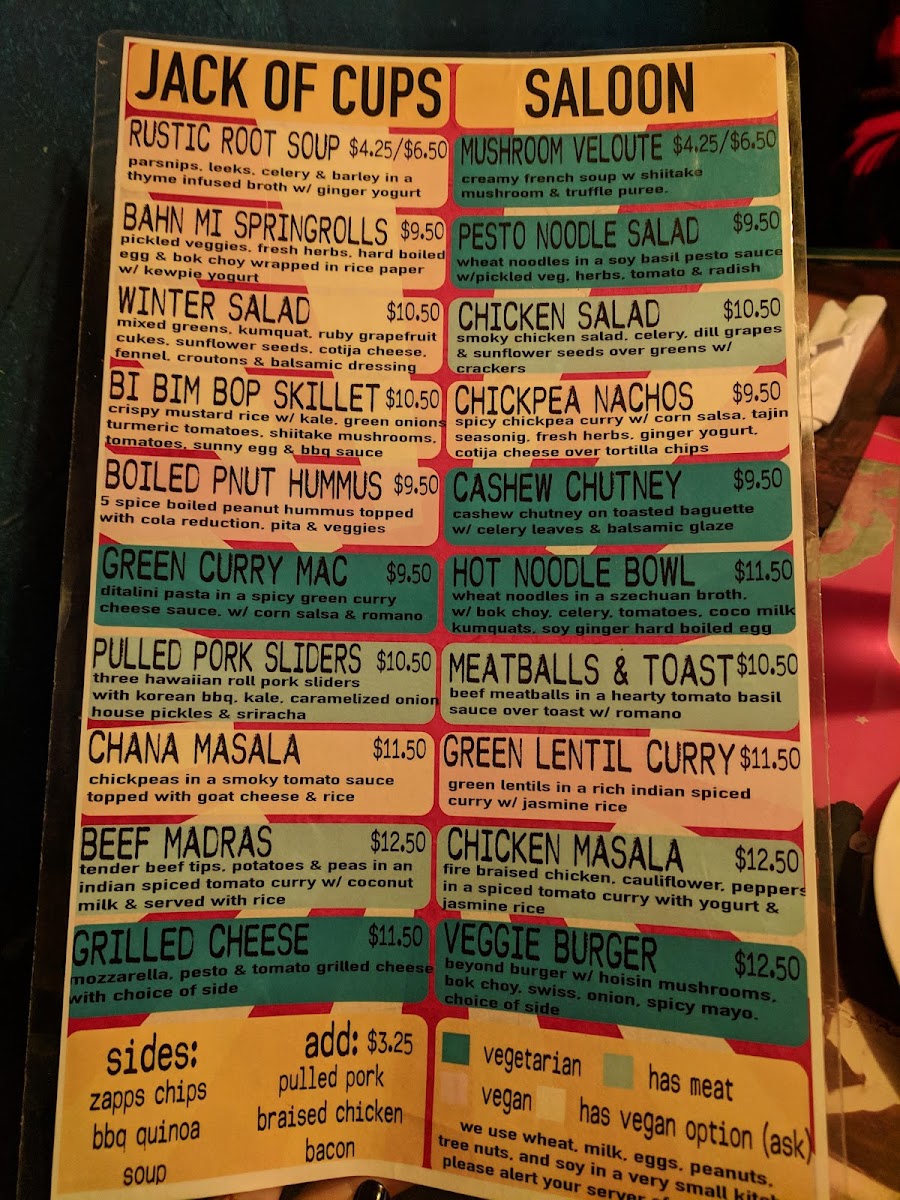 JACK OF CUPS SALOON
RUSTIC ROOT SOUP $4.25/$6.50
parsnips, leeks, celery & barley in a
thyme infused broth w/ ginger yogurt
BAHN MI SPRINGROLLS $9.50
pickled veggies, fresh herbs, hard boiled
egg & bok choy wrapped in rice paper
w/ kewpie yogurt
WINTER SALAD $10.50
mixed greens, kumquat, ruby grapefruit
cukes, sunflower seeds, cotija cheese,
fennel, croutons & balsamic dressing
BI BIM BOP SKILLET $10.50
crispy mustard rice w/ kale, green onions
turmeric tomatoes, shiitake mushrooms,
tomatoes, sunny egg & bbq sauce
BOILED PNUT HUMMUS $9.50
5 spice boiled peanut hummus topped
with cola reduction, pita & veggies
GREEN CURRY MAC $9.50
ditalini pasta in a spicy green curry
cheese sauce, w/ corn salsa & romano
PULLED PORK SLIDERS $10.50
three hawaiian roll pork sliders
with korean bbq, kale, caramelized onion
house pickles & sriracha
CHANA MASALA $11.50
chickpeas in a smoky tomato sauce
topped with goat cheese & rice
BEEF MADRAS $12.50
tender beef tips, potatoes & peas in an
indian spiced tomato curry w/ coconut
milk & served with rice
GRILLED CHEESE $11.50
mozzarella, pesto & tomato grilled cheese
with choice of side
MUSHROOM VELOUTE $4.25/$6.50
creamy french soup w shiitake
mushroom & truffle puree.
PESTO NOODLE SALAD $9.50
wheat noodles in a soy basil pesto sauce
w/pickled veg, herbs, tomato & radish
CHICKEN SALAD $10.50
smoky chicken salad, celery, dill grapes
& sunflower seeds over greens w/
crackers
CHICKPEA NACHOS $9.50
spicy chickpea curry w/ corn salsa, tajin
seasonig, fresh herbs, ginger yogurt,
cotija cheese over tortilla chips
CASHEW CHUTNEY $9.50
cashew chutney on toasted baguette
w/ celery leaves & balsamic glaze
HOT NOODLE BOWL $11.50
wheat noodles in a szechuan broth,
w/ bok choy, celery, tomatoes, coco milk
kumquats, soy ginger hard boiled egg
MEATBALLS & TOAST $10.50
beef meatballs in a hearty tomato basil
sauce over toast w/ romano
GREEN LENTIL CURRY $11.50
green lentils in a rich indian spiced
curry w/ jasmine rice
CHICKEN MASALA $12.50
fire braised chicken, cauliflower, peppers
in a spiced tomato curry with yogurt &
jasmine rice
VEGGIE BURGER $12.50
beyond burger w/ hoisin mushrooms,
bok choy, swiss, onion, spicy mayo,
choice of side
sides:
zapps chips
bbq quinoa
soup
add: $3.25
pulled pork
braised chicken
bacon
vegetarian has meat
vegan has vegan option (ask)
we use wheat, milk, eggs, peanuts,
tree nuts, and soy in a very small
please alert your server